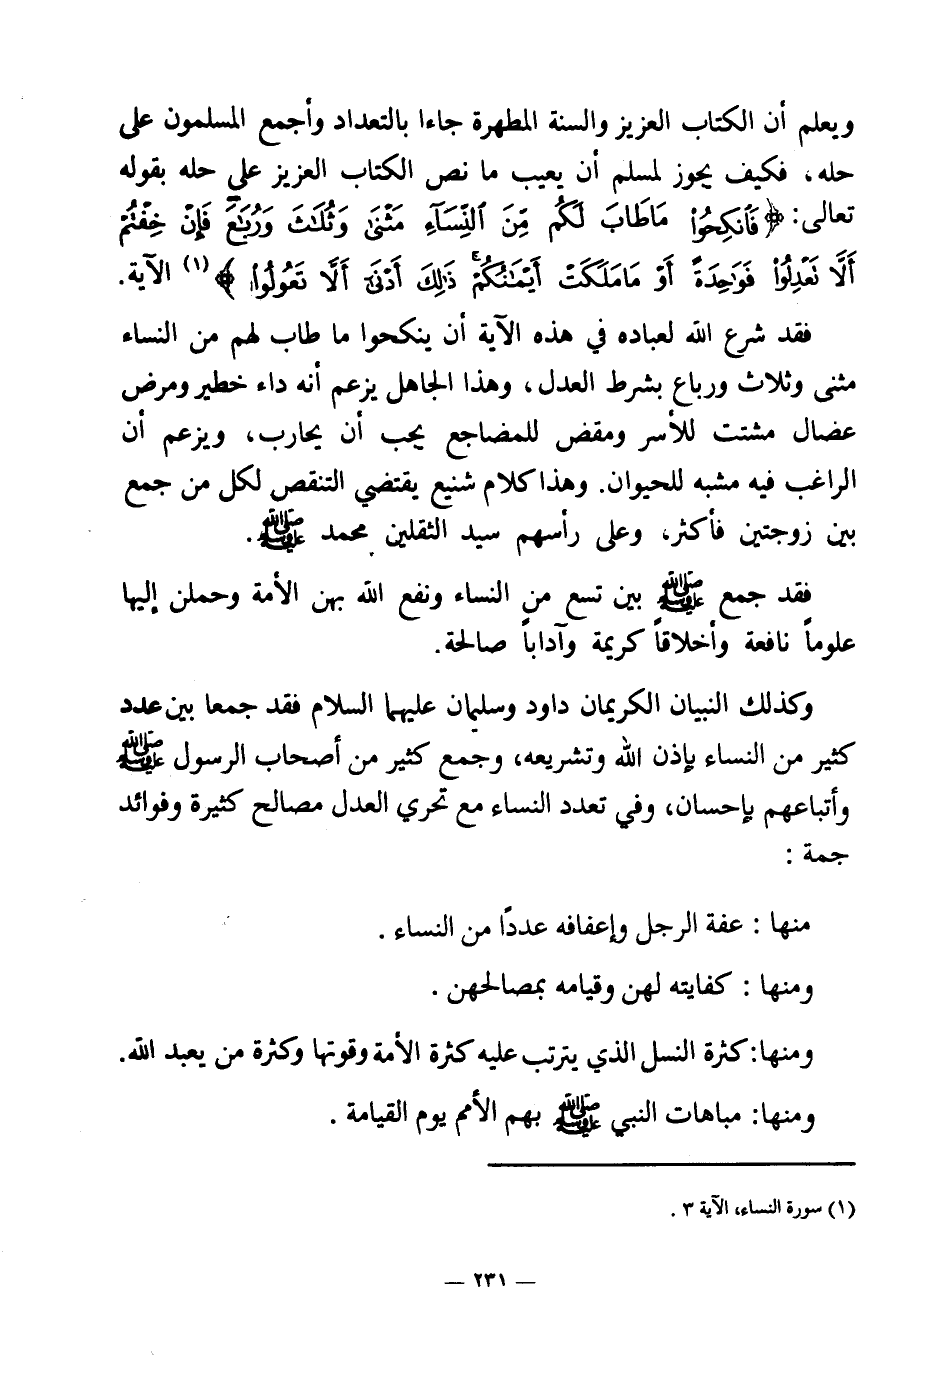 ويعلم أن الكتاب العزيز والسنة المطهرة جاءا بالتعداد وأجمع المسلمون على
حله، فكيف يجوز لمسلم أن يعيب ما نص الكتاب العزيز على حله بقوله
تعالى: ﴿فَٱنكِحُوا۟ مَاطَابَ لَكُم مِّنَ ٱلنِّسَآءِ مَثْنَىٰ وَثُلَٰثَ وَرُبَٰعَ فَإِنْ خِفْتُمْ
أَلَّا تَعْدِلُوا۟ فَوَٰحِدَةً أَوْ مَامَلَكَتْ أَيْمَٰنُكُمْ ۚ ذَٰلِكَ أَدْنَىٰٓ أَلَّا تَعُولُوا۟﴾(١) الآية.
فقد شرع الله لعباده في هذه الآية أن ينكحوا ما طاب لهم من النساء
مثنى وثلاث ورباع بشرط العدل، وهذا الجاهل يزعم أنه داء خطير ومرض
عضال مشتت للأسر ومقض للمضاجع يجب أن يحارب، ويزعم أن
الراغب فيه مشبه للحيوان. وهذا كلام شنيع يقتضي التنقص لكل من جمع
بين زوجتين فأكثر، وعلى رأسهم سيد الثقلين محمد ﷺ.
فقد جمع ﷺ بين تسع من النساء ونفع الله بهن الأمة وحملن إليها
علوماً نافعة وأخلاقاً كريمة وآداباً صالحة.
وكذلك النبيان الكريمان داود وسليمان عليهما السلام فقد جمعا بين عدد
كثير من النساء بإذن الله وتشريعه، وجمع كثير من أصحاب الرسول ﷺ
وأتباعهم بإحسان، وفي تعدد النساء مع تحري العدل مصالح كثيرة وفوائد
جمة :
منها : عفة الرجل وإعفافه عددًا من النساء .
ومنها : كفايته لهن وقيامه بمصالحهن .
ومنها: كثرة النسل الذي يترتب عليه كثرة الأمة وقوتها وكثرة من يعبد الله.
ومنها: مباهات النبي ﷺ بهم الأمم يوم القيامة .
(١) سورة النساء، الآية ٣ .
— ٢٣١ —